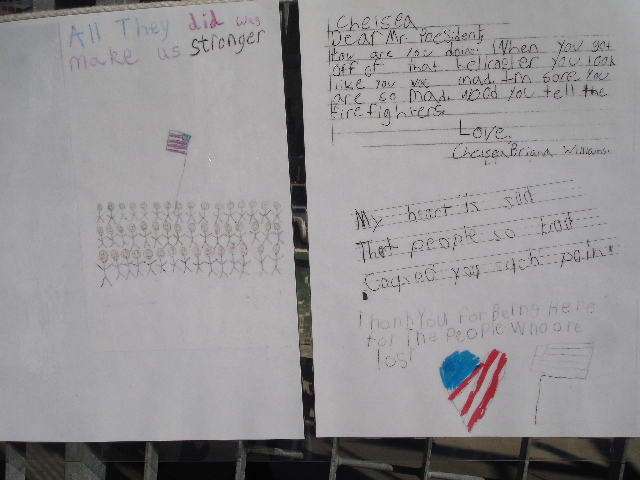 All They did was
make us stronger
Chelsea
Dear Mr. President,
How are you doing. When you got
off of that helicopter you look
like you was mad. I'm sore you
are so mad. you tell the
firefighters
Love,
Chelsea Briana Williams.
My heart is sad
That people so bad
Caused you such pain.
Thank You For Being Here
for The People Who are
lost